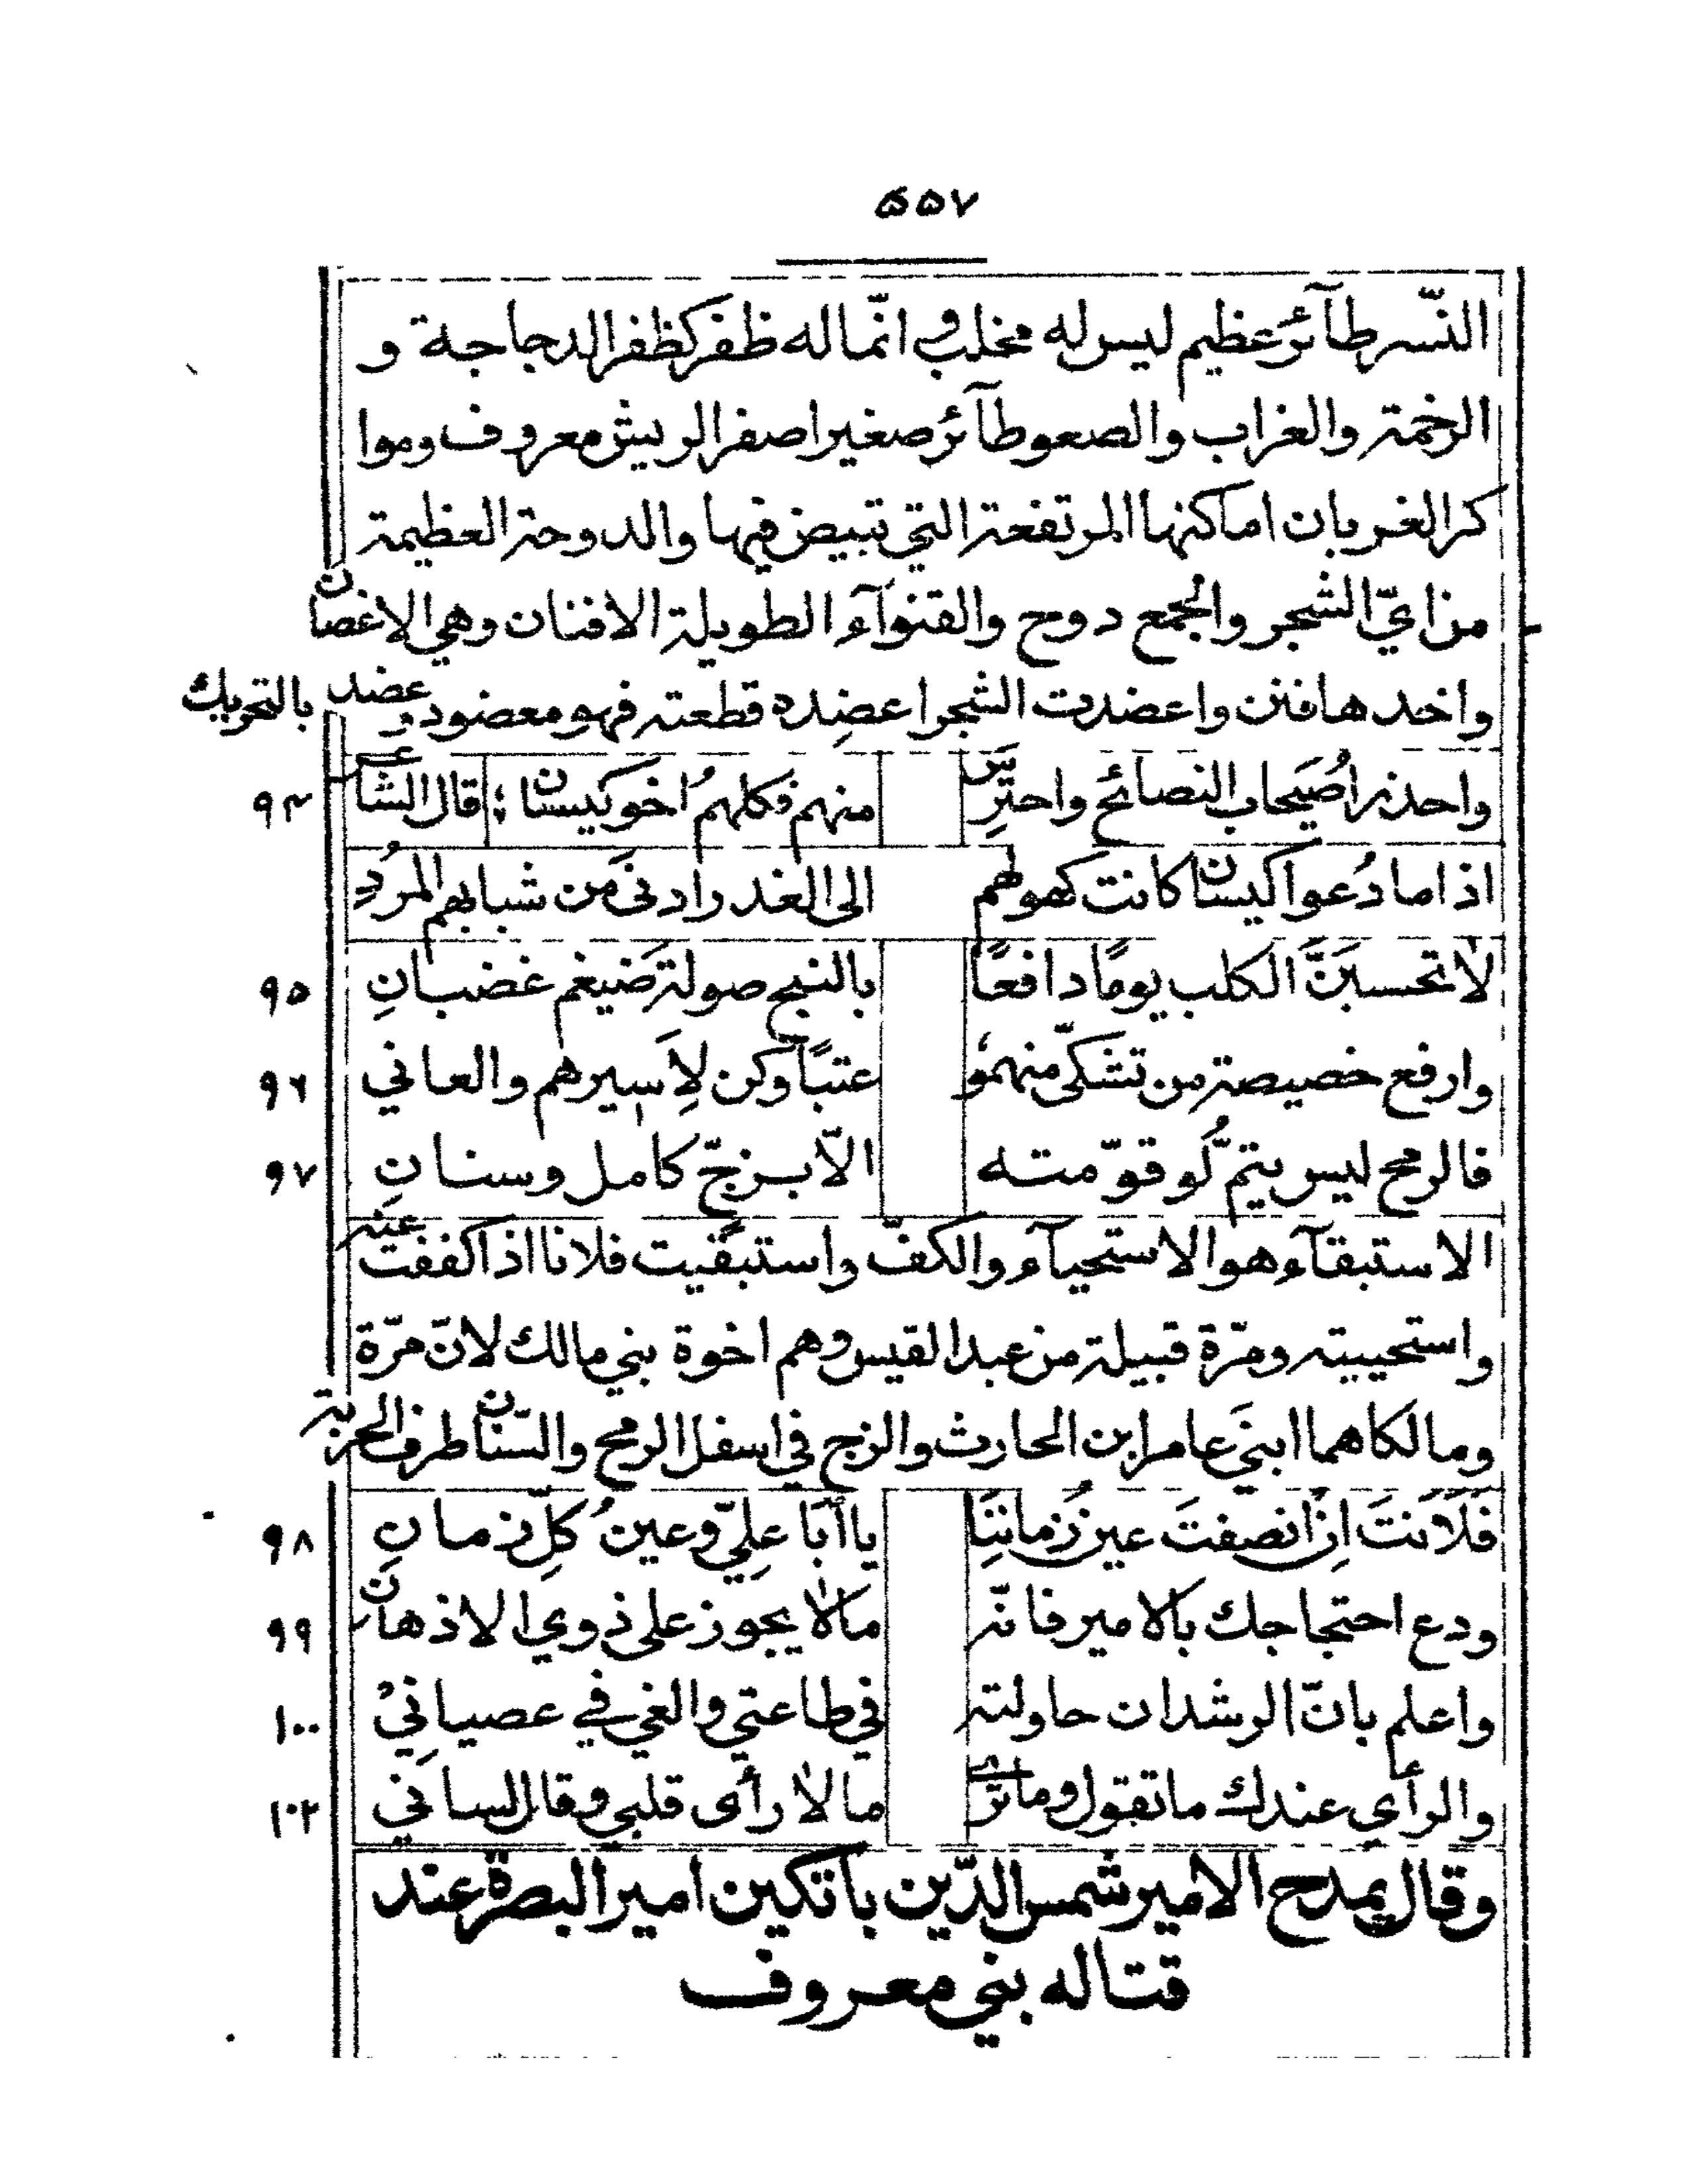 ٥٥٧
النّسر طآئر عظيم ليس له مخلب و انّما له ظفر كظفر الدجاجة و
الرخمة والغراب والصعو طآئر صغير اصفر الريش معروف وموا
كر الغربان اماكنها المرتفعة التي تبيض فيها والدوحة العظيمة
من ايّ الشجر والجمع دوح والقنوآء الطويلة الافنان وهي الاغصان
واحدها فنن واعضدت الشجر اعضِده قطعته فهو معضود و عضد بالتحريك
واحذر اُصَيحاب النصائح واحترِسَّ منهم فكلهمُ اخو كيسان ؛ قال الشاعر ٩٤
اذا ما دُعوا كيسان كانت كهولهم الى الغدر ادنىَ من شبابهم المُردِ
لا تحسبَنَّ الكلب يومًا دافعًا بالنبح صولة ضَيغم غضبانِ ٩٥
وارفع خصيصة من تشكّى منهمُو عتبًا وكن لِاَسيرهم والعاني ٩٦
فالرمح ليس يتمّ لُو قوّمته الّا بزجّ كامل وسنانِ ٩٧
الاستبقآء هو الاستحيآء والكفّ واستبقيت فلانا اذا كففت عنه
واستحييته ومرّة قبيلة من عبد القيس وهم اخوة بني مالك لانّ مرّة
ومالكا هما ابنيَ عامر ابن الحارث والزج في اسفل الرمح والسّنان طرف الحربة
فَلَاَنتَ اِن انصفتَ عين زَماننِاَ يا أبَا علِيّ وعينُ كلِّ زمانِ ٩٨
ودع احتجاجك بالامير فانّه مالا يجوز على ذوي الاذهان ٩٩
واعلم بانّ الرشد ان حاولته في طاعتي والغي في عصيانِيْ ١٠٠
والرأي عندك ما تقول وما ترى مالا رأى قلبي وقال لساني ١٠٢
وقال يمدح الامير شمس الدّين باتكين امير البصرة عند
قتاله بني معروف